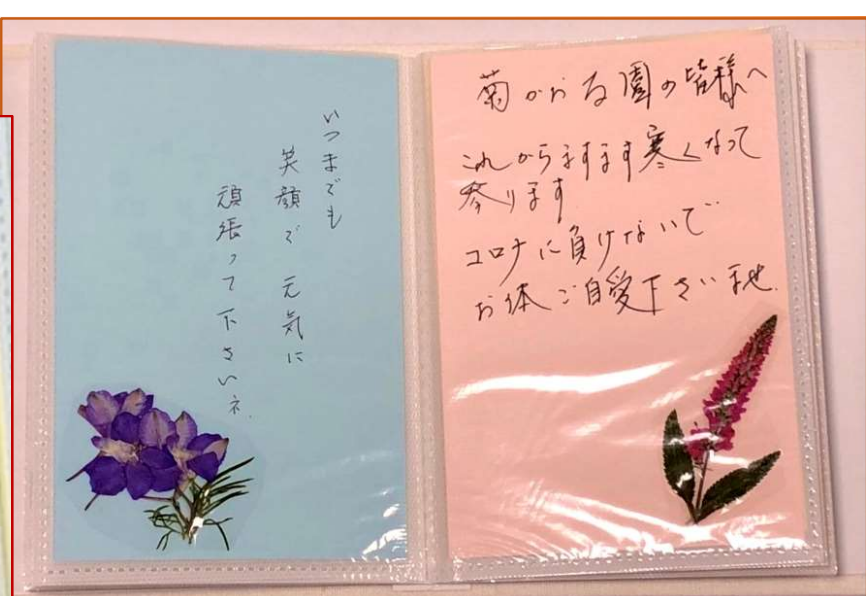 いつまでも
笑顔で元気に
頑張って下さいネ.
菊かおる園の皆様へ
これからますます寒くなって
参ります
コロナに負けないで
お体ご自愛下さいませ.